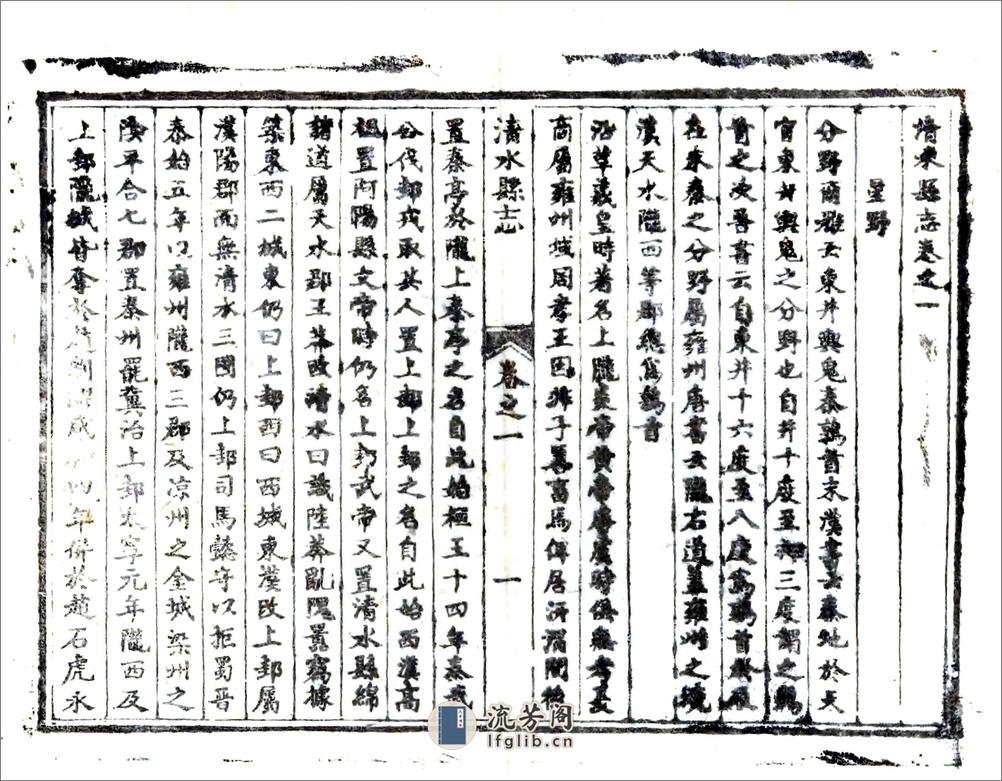 清水縣志卷之一
星野
分野爾雅云東井輿鬼秦鶉首宋漢書云秦地於天
官東井輿鬼之分野也自井十度至柳三度謂之鶉
首之次晉書云自東井十六度至八度為鶉首於辰
在未秦之分野屬雍州唐書云隴右道蓋雍州之境
漢天水隴西等郡總為鶉首
沿革羲皇時著名上隴炎帝黃帝唐虞時俱無考夏
商屬雍州域周孝王因非子善畜馬俾居汧渭間後
清水縣志
卷之一
一
置秦亭於隴上秦亭之名自此始桓王十四年秦武
公伐邽戎取其人置上邽上邽之名自此始西漢高
祖置阿陽縣文帝時仍名上邽武帝又置清水縣綿
諸道屬天水郡王莽改清水曰識陸莽亂隗囂竊據
築東西二城東仍曰上邽西曰西城東漢改上邽屬
漢陽郡而無清水三國仍上邽司馬懿守以拒蜀晉
泰始五年以雍州隴西三郡及凉州之金城梁州之
陰平合七郡置秦州罷冀治上邽太寧元年隴西及
上邽隴城皆奪於趙劉 咸 四年併於趙石虎永
流芳阁
lfglib.cn